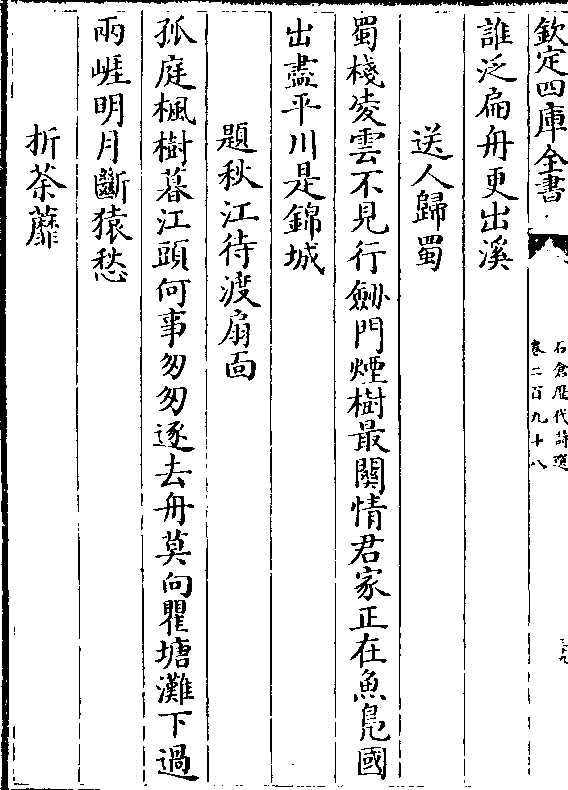 欽定四庫全書
石倉歴代詩選
卷二百九十八
誰泛扁舟更出溪
送人歸蜀
蜀棧凌雲不見行劒門煙樹最關情君家正在魚鳧國
出盡平川是錦城
題秋江待渡扇面
孤庭楓樹暮江頭何事匆匆逐去舟莫向瞿塘灘下過
兩崖明月斷猿愁
折荼蘼